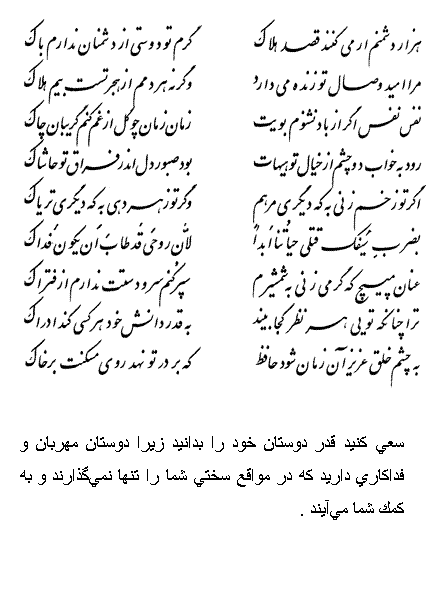 هزار دشمنم ار می کنند قصد هلاک گرم تو دوستی از دشمنان ندارم باک
مرا امید وصال تو زنده می دارد وگرنه هر دمم از هجر تست بیم هلاک
نفس نفس اگر از باد نشنوم بویت زمان زمان چو گل از غم کنم گریبان چاک
رود به خواب دو چشم از خیال تو هیهات بود صبور دل اندر فراق تو حاشاک
اگر تو زخم زنی به که دیگری مرهم وگر تو زهر دهی به که دیگری تریاک
بضربِ سَیفک قتلی حیاتُنا ابداً لأنّ روحی قُد طابَ أن یکون فداک
عنان مپیچ که گر می زنی به شمشیرم سپر کنم سر و دستت ندارم از فتراک
ترا چنانکه تویی هر نظر کجا بیند به قدر دانش خود هر کسی کند ادراک
به چشم خلق عزیز آن زمان شود حافظ که بر در تو نهد روی مسکنت بر خاک
سعي كنيد قدر دوستان خود را بدانيد زيرا دوستان مهربان و
فداكاري داريد كه در مواقع سختي شما را تنها نمي‌گذارند و به
كمك شما مي‌آيند .